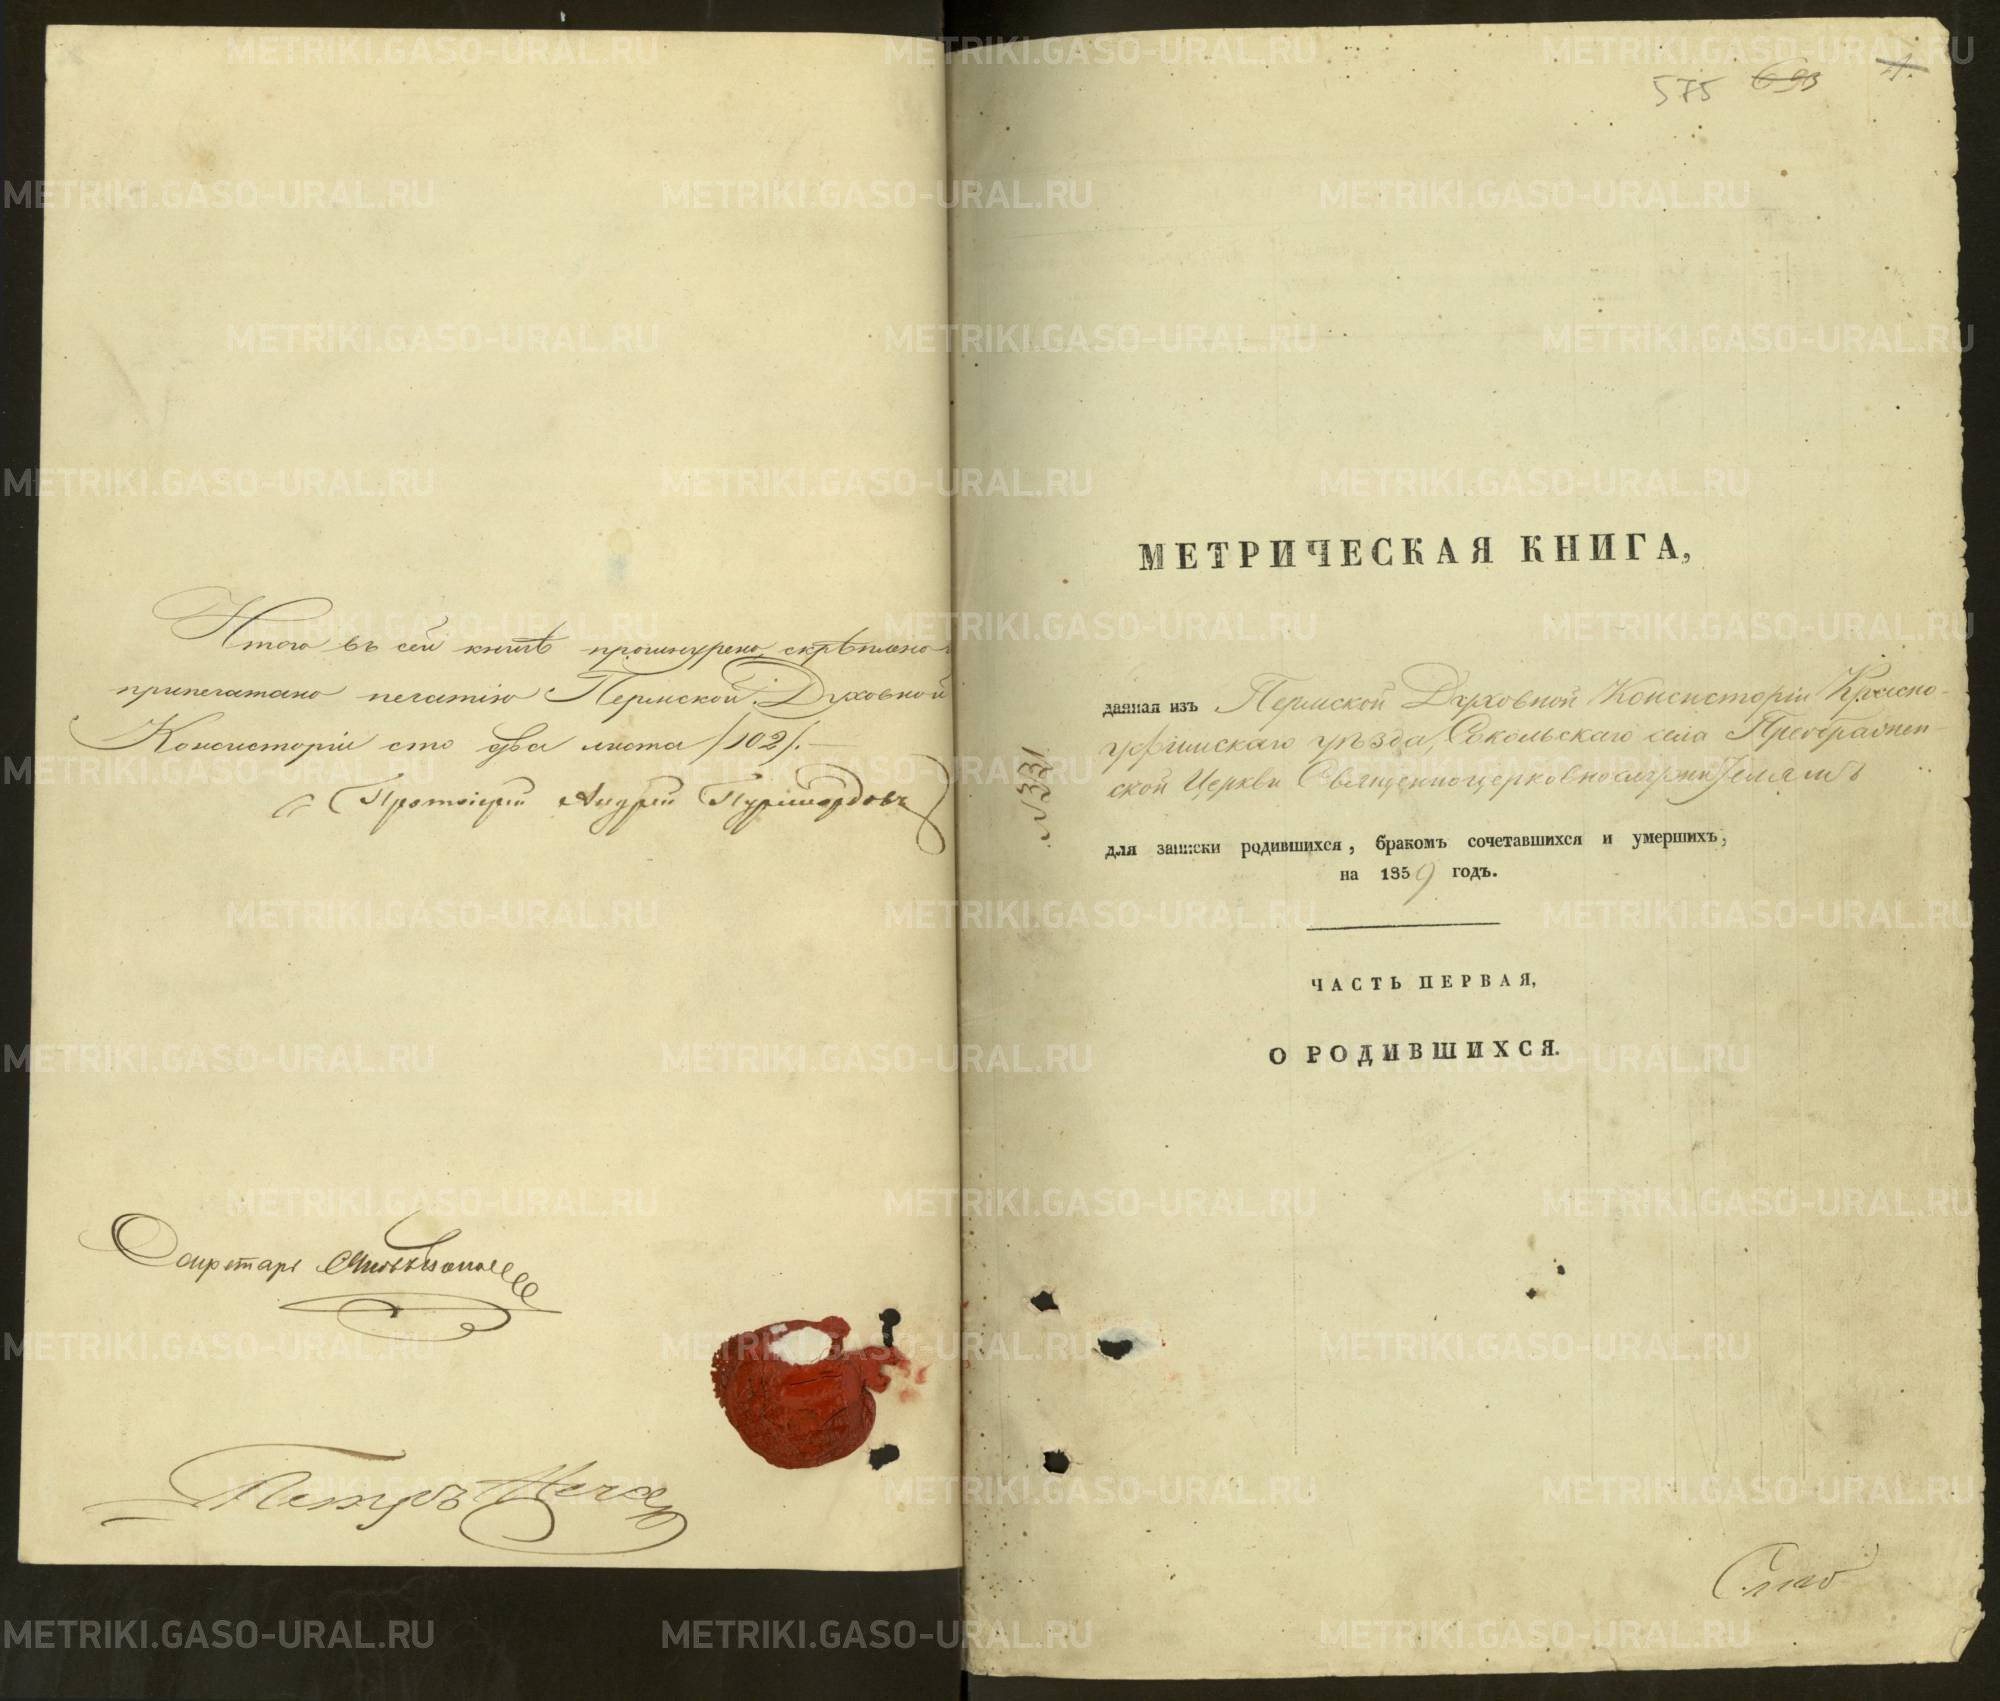 Итого въ сей книгѣ прошнурено, скрѣплено и
припечатано печатію Пермской Духовной
Консисторіи сто два листа /102/.
Протоіерей Андрей
Секретарь
Петръ
575 693 1.
МЕТРИЧЕСКАЯ КНИГА,
данная изъ Пермской Духовной Консисторіи Красно-
уфимскаго уѣзда, Сокольскаго села Преображен-
ской Церкви Священноцерковнослужителямъ
для записки родившихся, бракомъ сочетавшихся и умершихъ,
на 1859 годъ.
ЧАСТЬ ПЕРВАЯ,
О РОДИВШИХСЯ.
METRIKI.GASO-URAL.RU